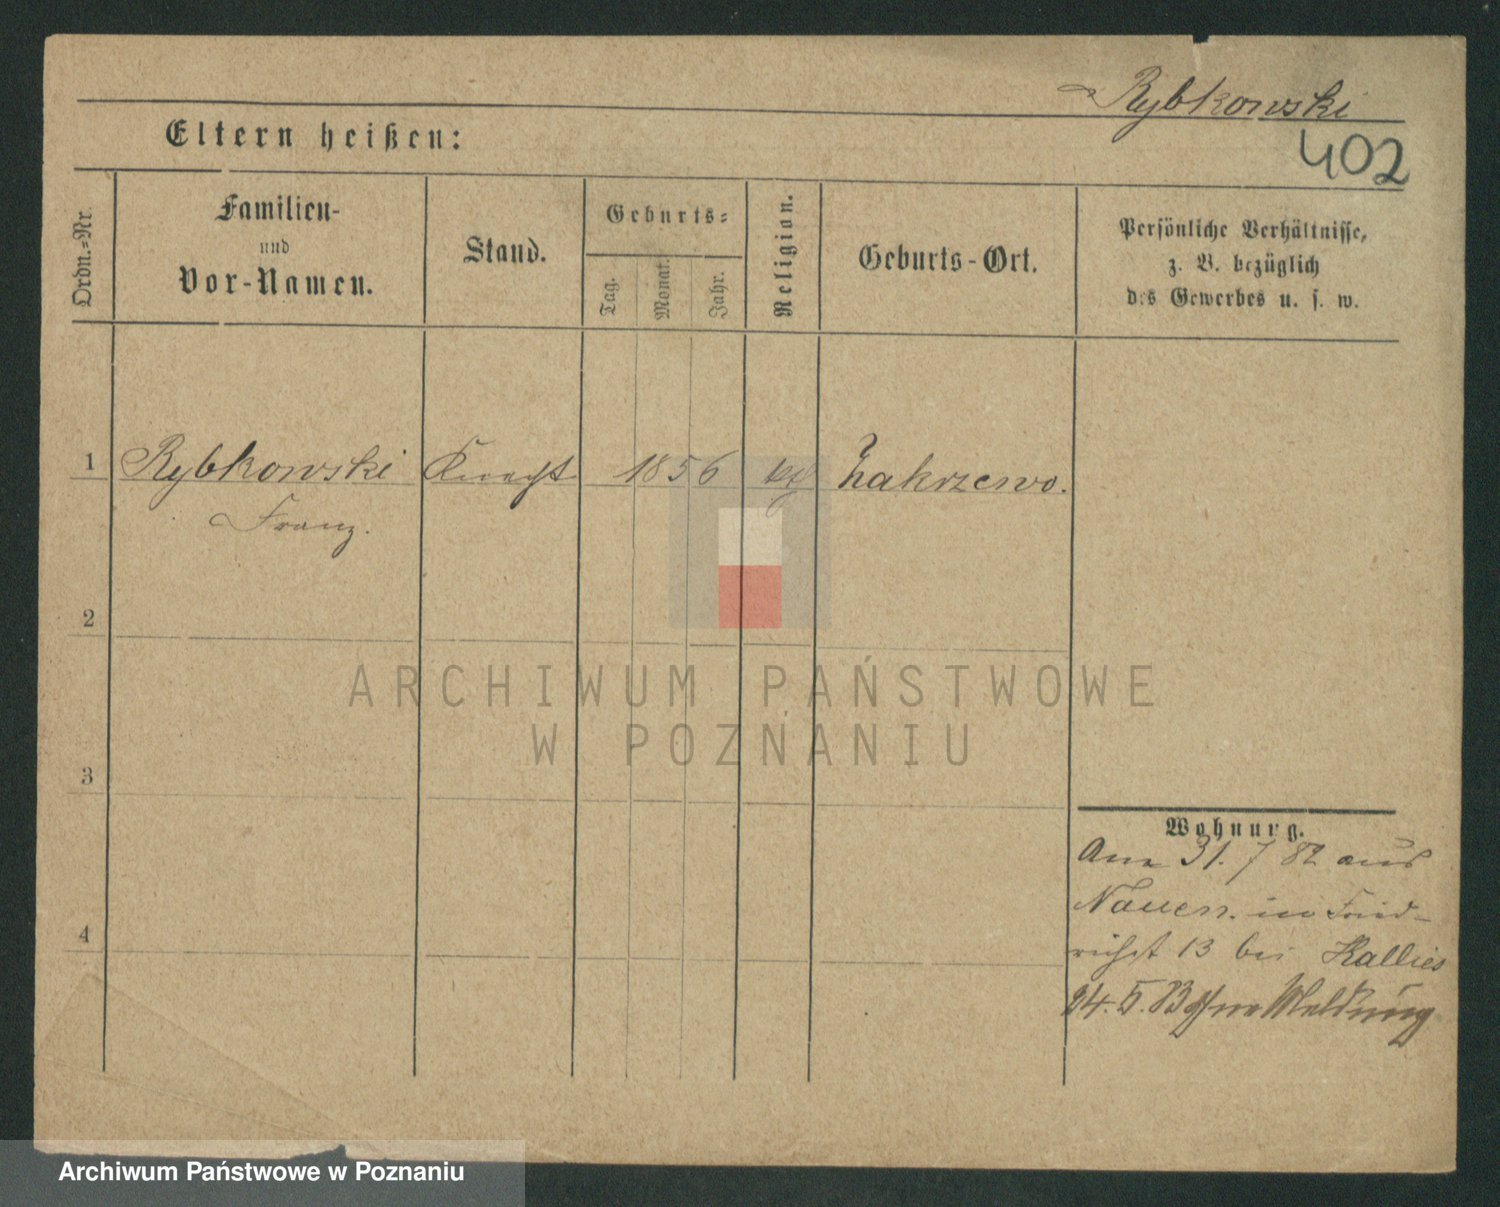 Rybkowski
402
Eltern heißen:
Ordn.=Nr.
Familien-
und
Vor-Namen.
Stand.
Geburts=
Tag.
Monat.
Jahr.
Religion.
Geburts-Ort.
Persönliche Verhältnisse,
z. B. bezüglich
des Gewerbes u. s. w.
1 Rybkowski Knecht 1856 kth Zakrzewo.
Franz.
2
3
4
ARCHIWUM PAŃSTWOWE
W POZNANIU
Wohnung.
Am 31. 7 82 aus
Nauen. in Fried-
richst 13 bei Kallies
24. 5. 83 ohne Meldung
Archiwum Państwowe w Poznaniu